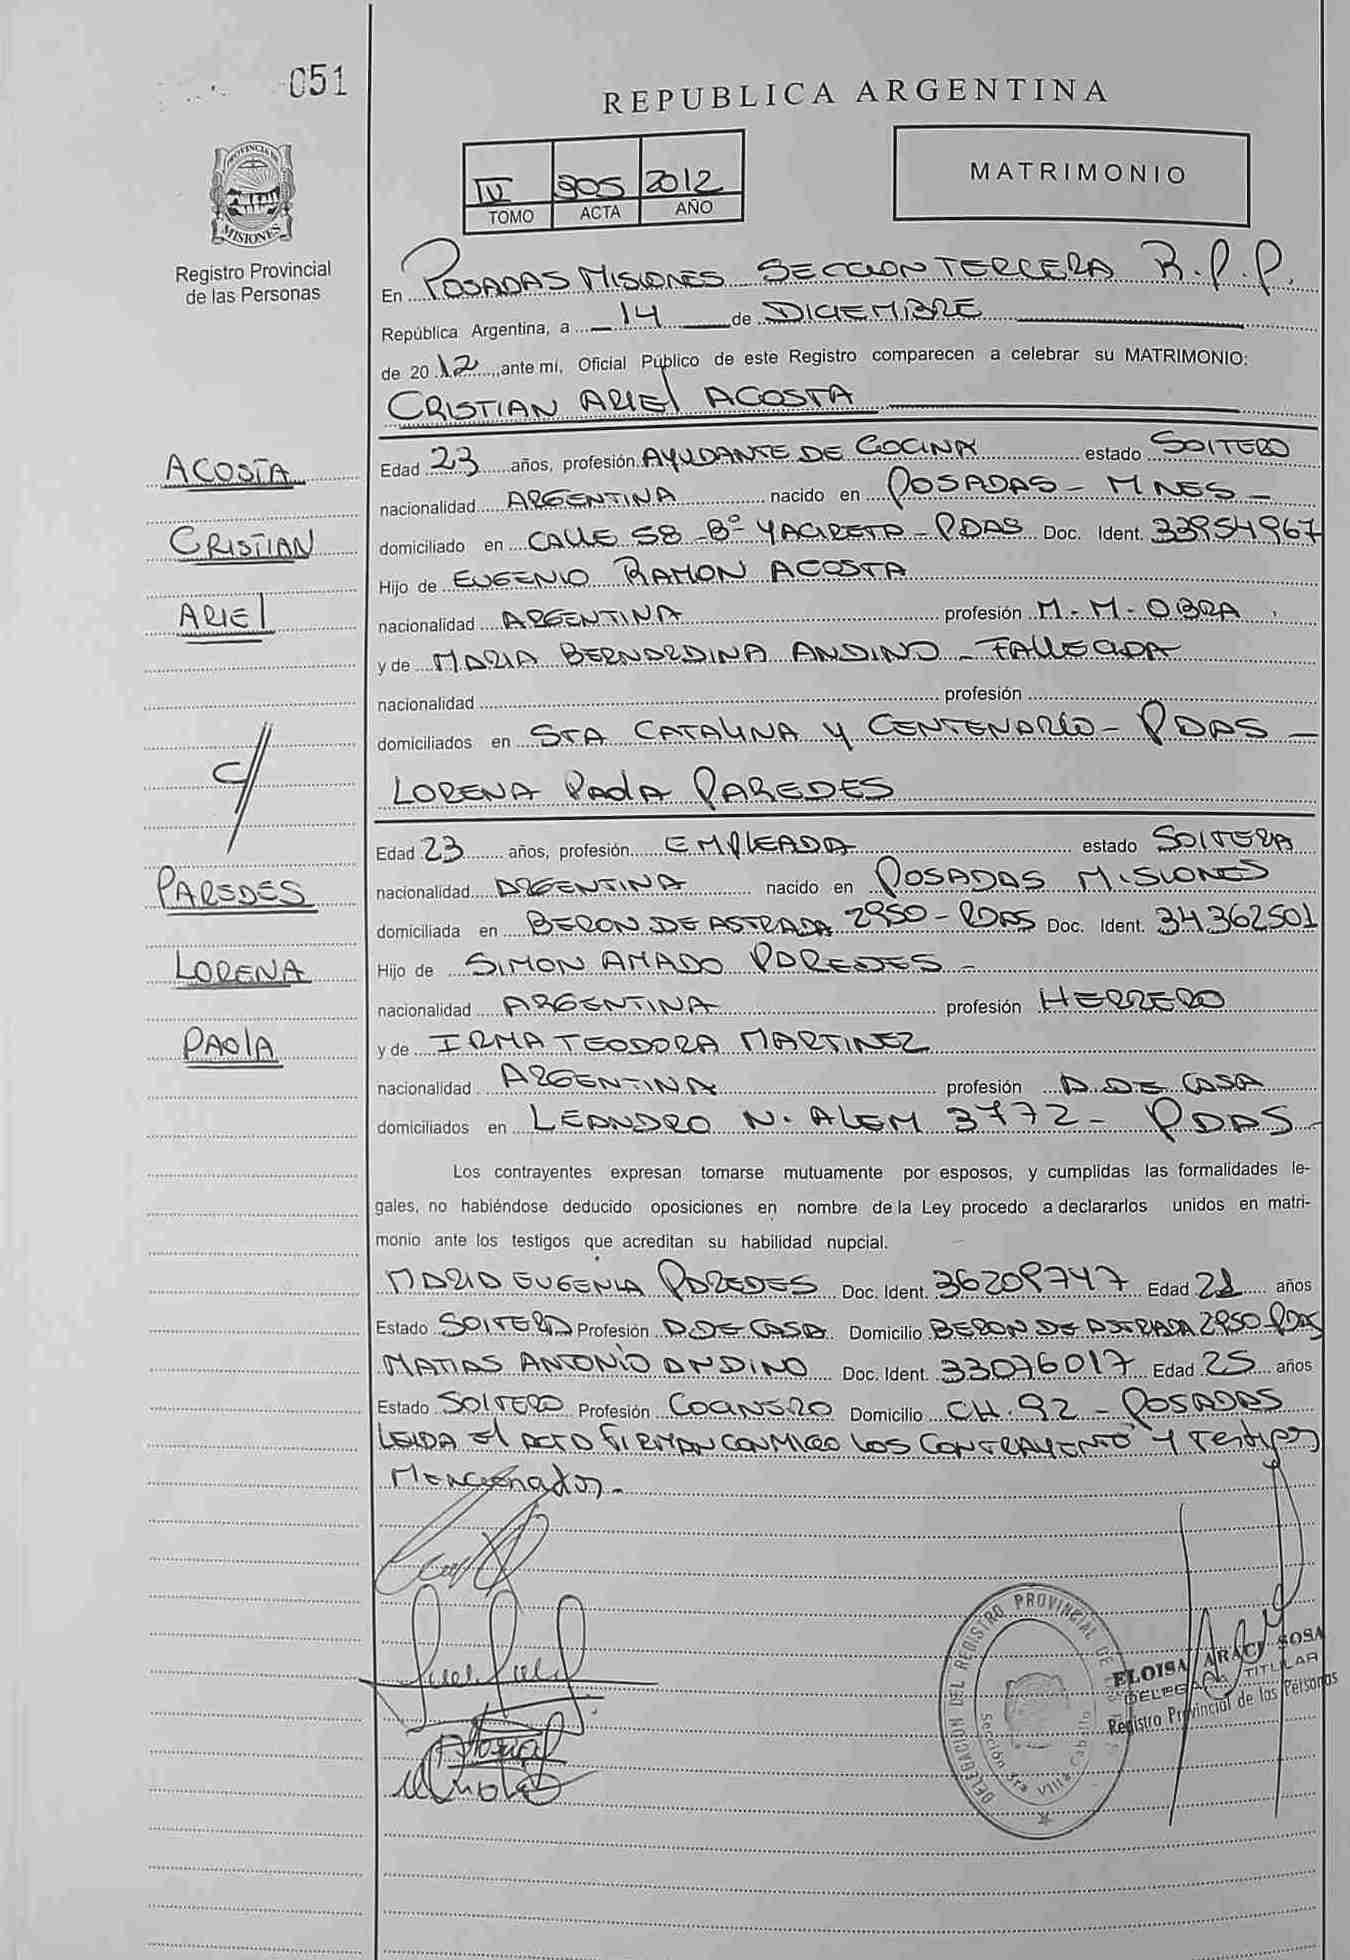 051
REPUBLICA ARGENTINA
PROVINCIA DE
MISIONES
Registro Provincial
de las Personas
IV 905 2012
TOMO ACTA AÑO
MATRIMONIO
En POSADAS MISIONES SECCION TERCERA R.P.P.
República Argentina, a 14 de DICIEMBRE
de 2012, ante mí, Oficial Público de este Registro comparecen a celebrar su MATRIMONIO:
CRISTIAN ARIEL ACOSTA
ACOSTA
CRISTIAN
ARIEL
c/
PAREDES
LORENA
PAOLA
Edad 23 años, profesión AYUDANTE DE COCINA estado SOLTERO
nacionalidad ARGENTINA nacido en POSADAS - MNES -
domiciliado en CALLE 58 - B° YACIRETA - PDAS Doc. Ident. 33954967
Hijo de EUGENIO RAMON ACOSTA
nacionalidad ARGENTINA profesión M. M. OBRA
y de MARIA BERNARDINA ANDINO - FALLECIDA
nacionalidad profesión
domiciliados en STA CATALINA Y CENTENARIO - PDAS -
LORENA PAOLA PAREDES
Edad 23 años, profesión EMPLEADA estado SOLTERA
nacionalidad ARGENTINA nacido en POSADAS MISIONES
domiciliada en BERON DE ASTRADA 2950 - PDAS Doc. Ident. 34362501
Hijo de SIMON AMADO PAREDES -
nacionalidad ARGENTINA profesión HERRERO
y de IRMA TEODORA MARTINEZ
nacionalidad ARGENTINA profesión A. DE CASA
domiciliados en LEANDRO N. ALEM 3772 - PDAS -
Los contrayentes expresan tomarse mutuamente por esposos, y cumplidas las formalidades le-
gales, no habiéndose deducido oposiciones en nombre de la Ley procedo a declararlos unidos en matri-
monio ante los testigos que acreditan su habilidad nupcial.
MARIA EUGENIA PAREDES Doc. Ident. 36209747 Edad 21 años
Estado SOLTERA Profesión A. DE CASA Domicilio BERON DE ASTRADA 2950 PDAS
MATIAS ANTONIO ANDINO Doc. Ident. 33076017 Edad 25 años
Estado SOLTERO Profesión COCINERO Domicilio CH. 92 - POSADAS
LEIDA El ACTA FIRMAN CONMIGO LOS CONTRAYENTE Y Testigos
Mencionados -
DELEGACION DEL REGISTRO PROVINCIAL DE
Sección 3ra Villa Cabello
ELOISA ARACI SOSA
DELEGADA TITULAR
Registro Provincial de las Personas